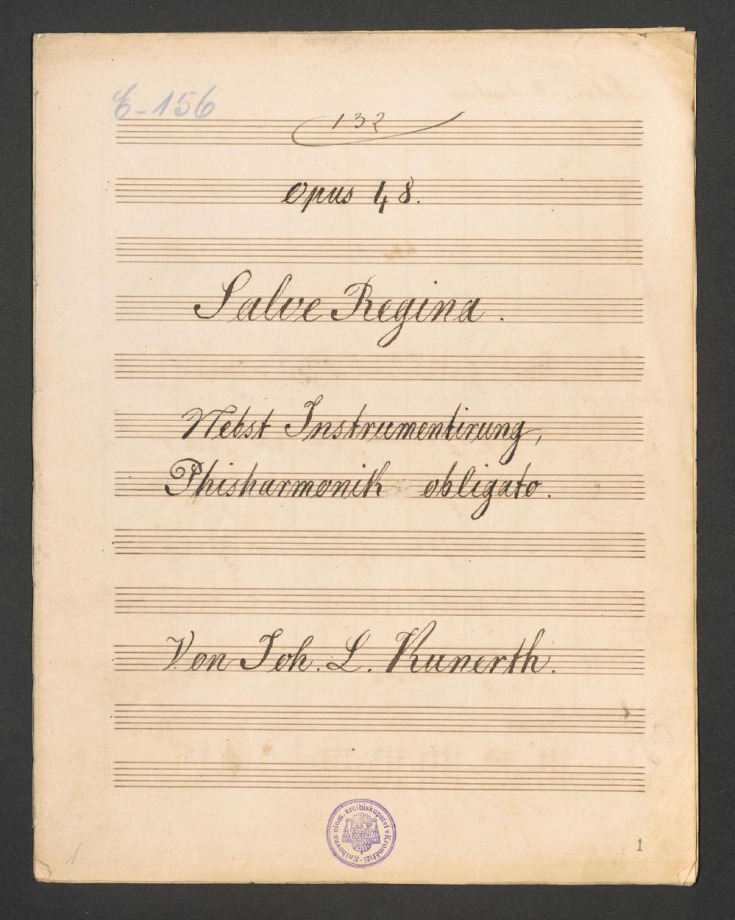 E-156
132
Opus 48.
Salve Regina.
Nebst Instrumentirung,
Phisharmonik obligato.
Von Joh. L. Kunerth.
Knihovna olom. arcibiskupství v Kroměříži
1
1